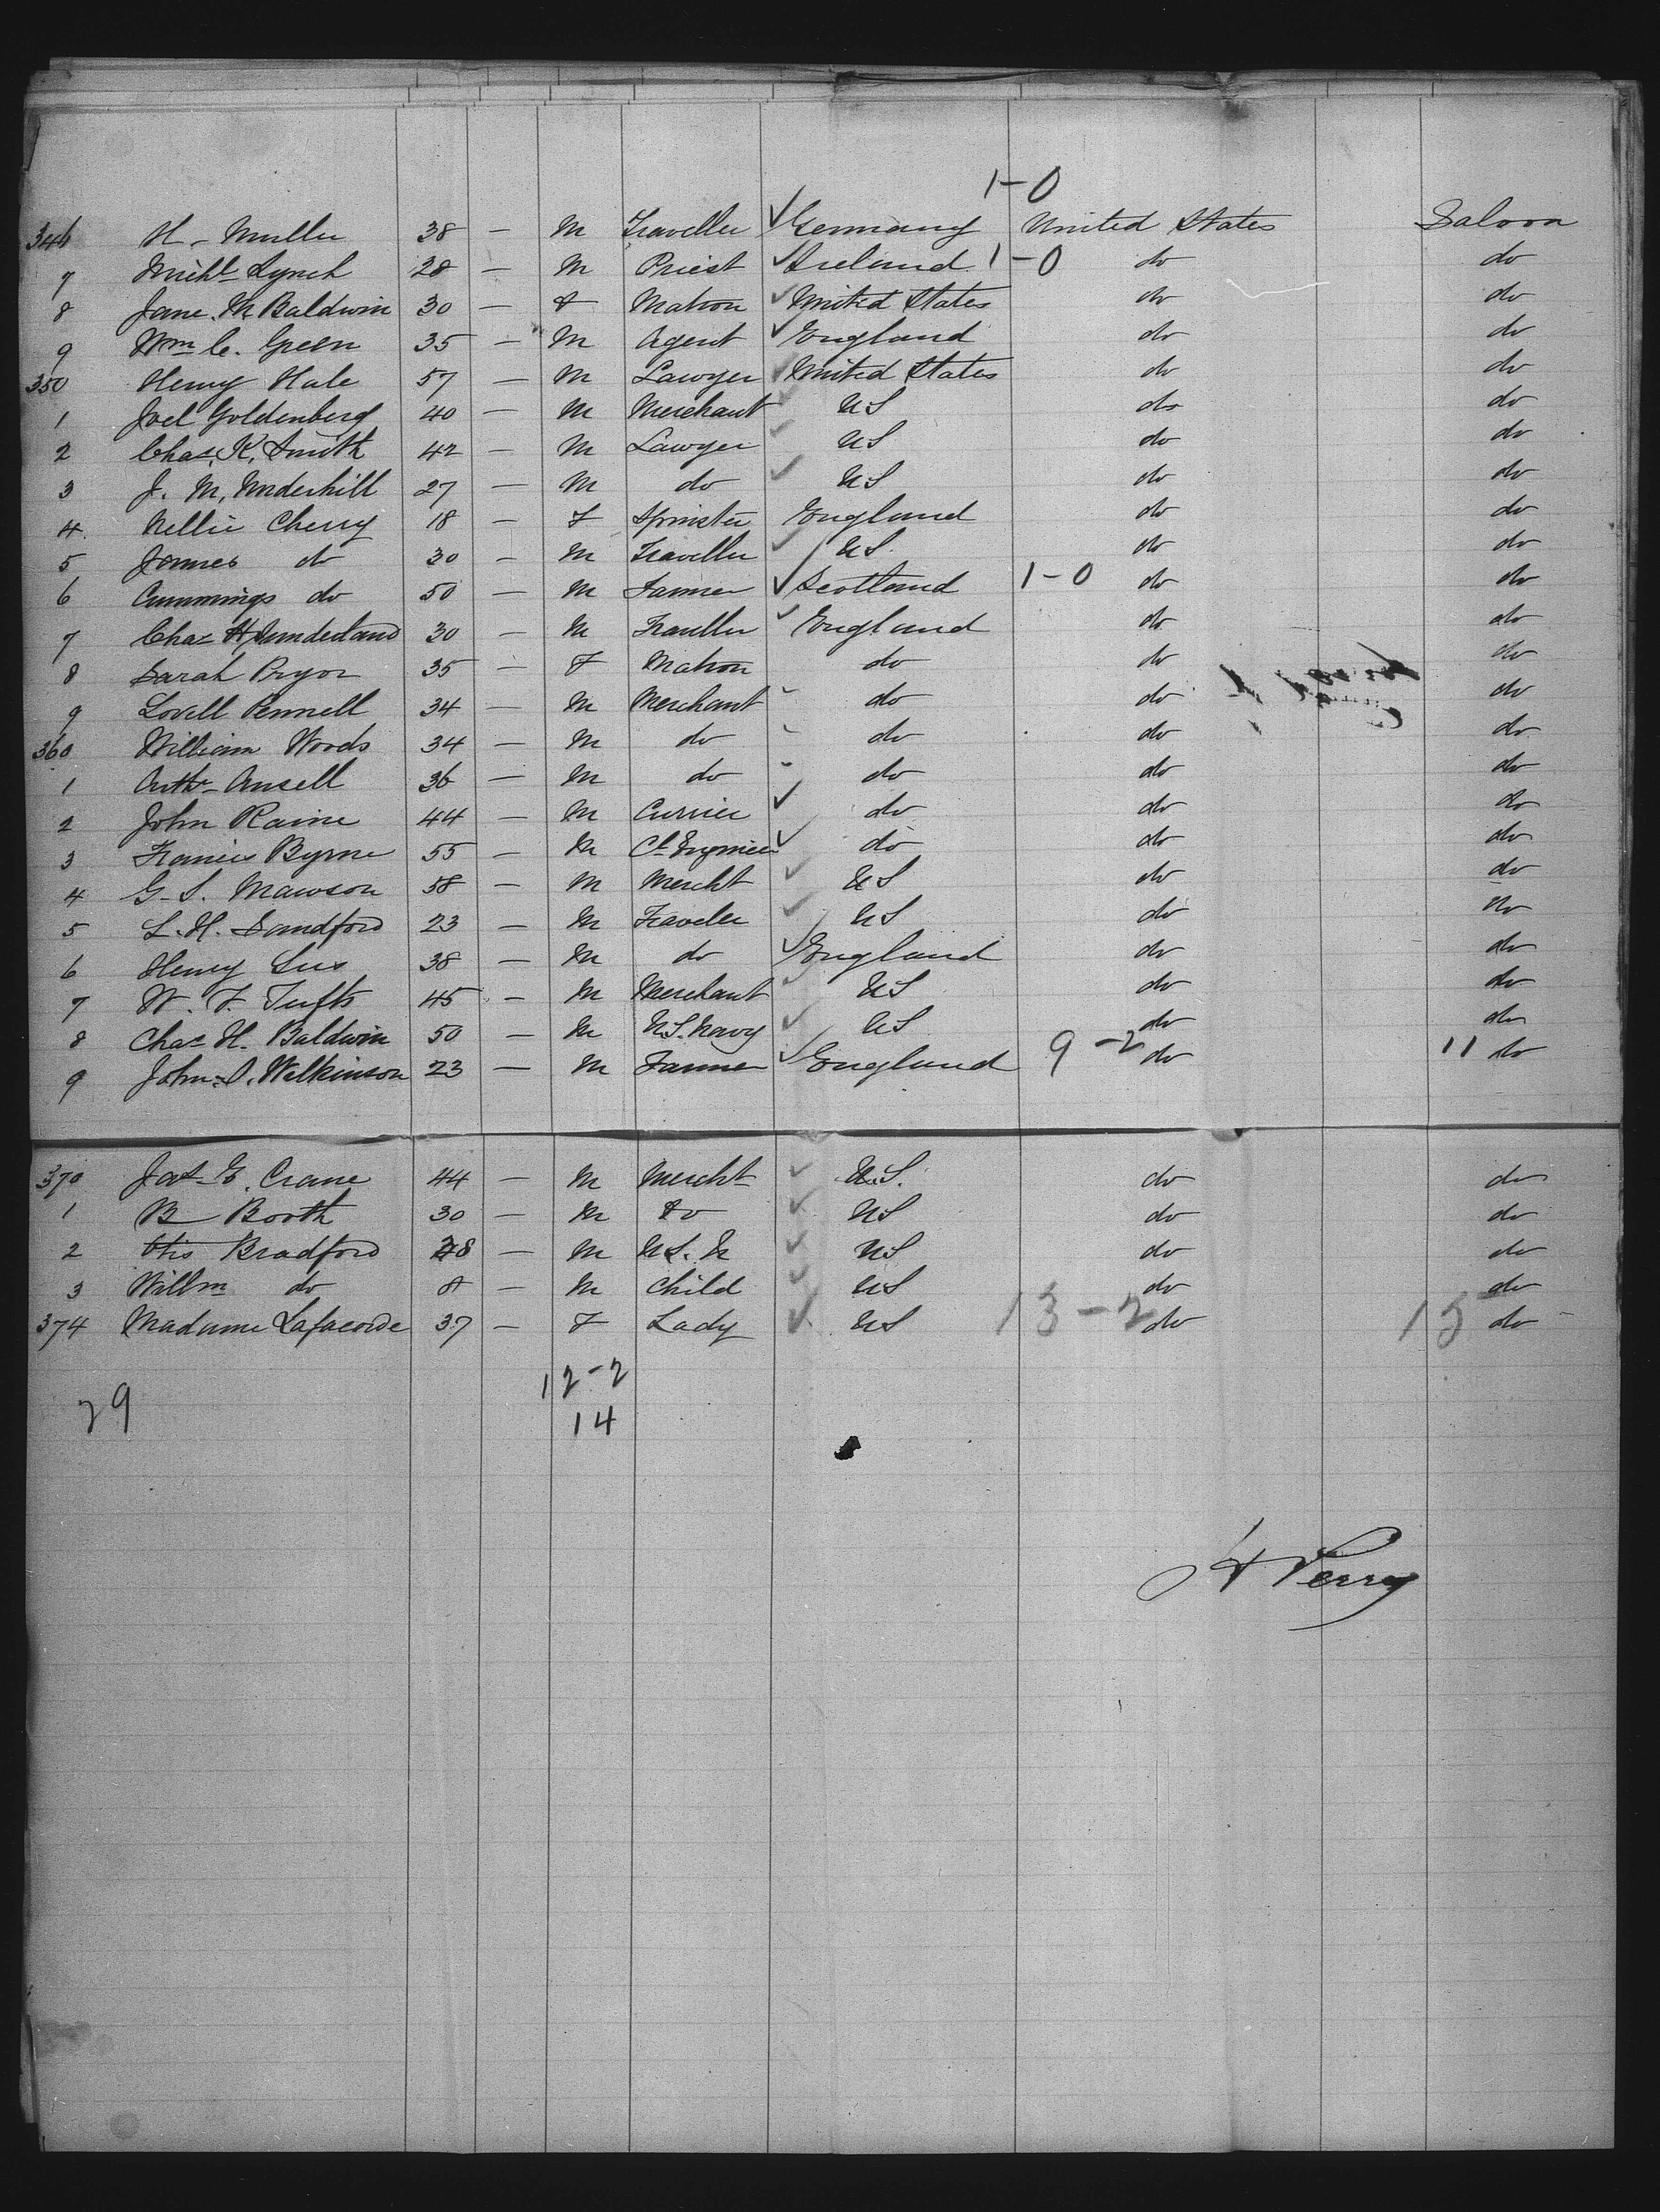 1-0
346 H. Muller 38 — M Traveller ✓ Germany United States Saloon
7 Michl Lynch 28 — M Priest ✓ Ireland 1-0 do do
8 Jane M Baldwin 30 — F Matron ✓ United States do do
9 Wm C. Green 35 — M Agent ✓ England do do
350 Henry Hale 57 — M Lawyer ✓ United States do do
1 Joel Goldenberg 40 — M Merchant ✓ US do do
2 Chas. K. Smith 42 — M Lawyer ✓ US do do
3 J. M. Underhill 27 — M do ✓ US do do
4 Nellie Cherry 18 — F Spinster England do do
5 James do 30 — M Traveller ✓ US. do do
6 Cummings do 50 — M Farmer ✓ Scotland 1-0 do do
7 Chas H Sunderland 30 — M Traveller ✓ England do do
8 Sarah Pryor 35 — F Matron do do do
9 Lovell Pennell 34 — M Merchant do do do
360 William Woods 34 — M do do do do
1 Arthr Ansell 36 — M do do do do
2 John Raine 44 — M Currier ✓ do do do
3 Francis Byrne 55 — M Cl Engineer ✓ do do do
4 G. S. Mawson 58 — M Mercht ✓ US do do
5 L. H. Sandford 23 — M Traveler ✓ US do do
6 Henry 38 — M do ✓ England do do
7 W. F. Tufts 45 — M Merchant ✓ US do do
8 Chas H. Baldwin 50 — M U.S. Navy ✓ US do do
9 John Wilkinson 23 — M Farmer ✓ England 9-2 do 11 do
370 Jas. G. Crane 44 — M Mercht ✓ U.S. do do
1 B Booth 30 — M do ✓ US do do
2 Otis Bradford 28 — M U.S. N ✓ US do do
3 Willm do 8 — M Child ✓ US do do
374 Madame Lafacorde 37 — F Lady ✓ US 13-2 do 15 do
12-2
29 14
H Perry